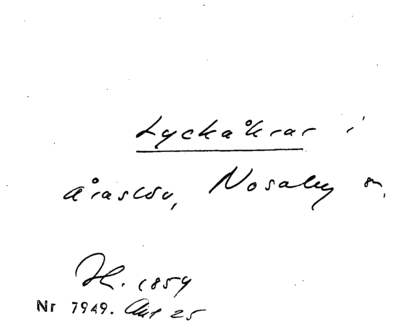 Lyckåkrar i
Åraslöv, Nosaby sn.
Ht. 1854
Nr 7949. Akt 25